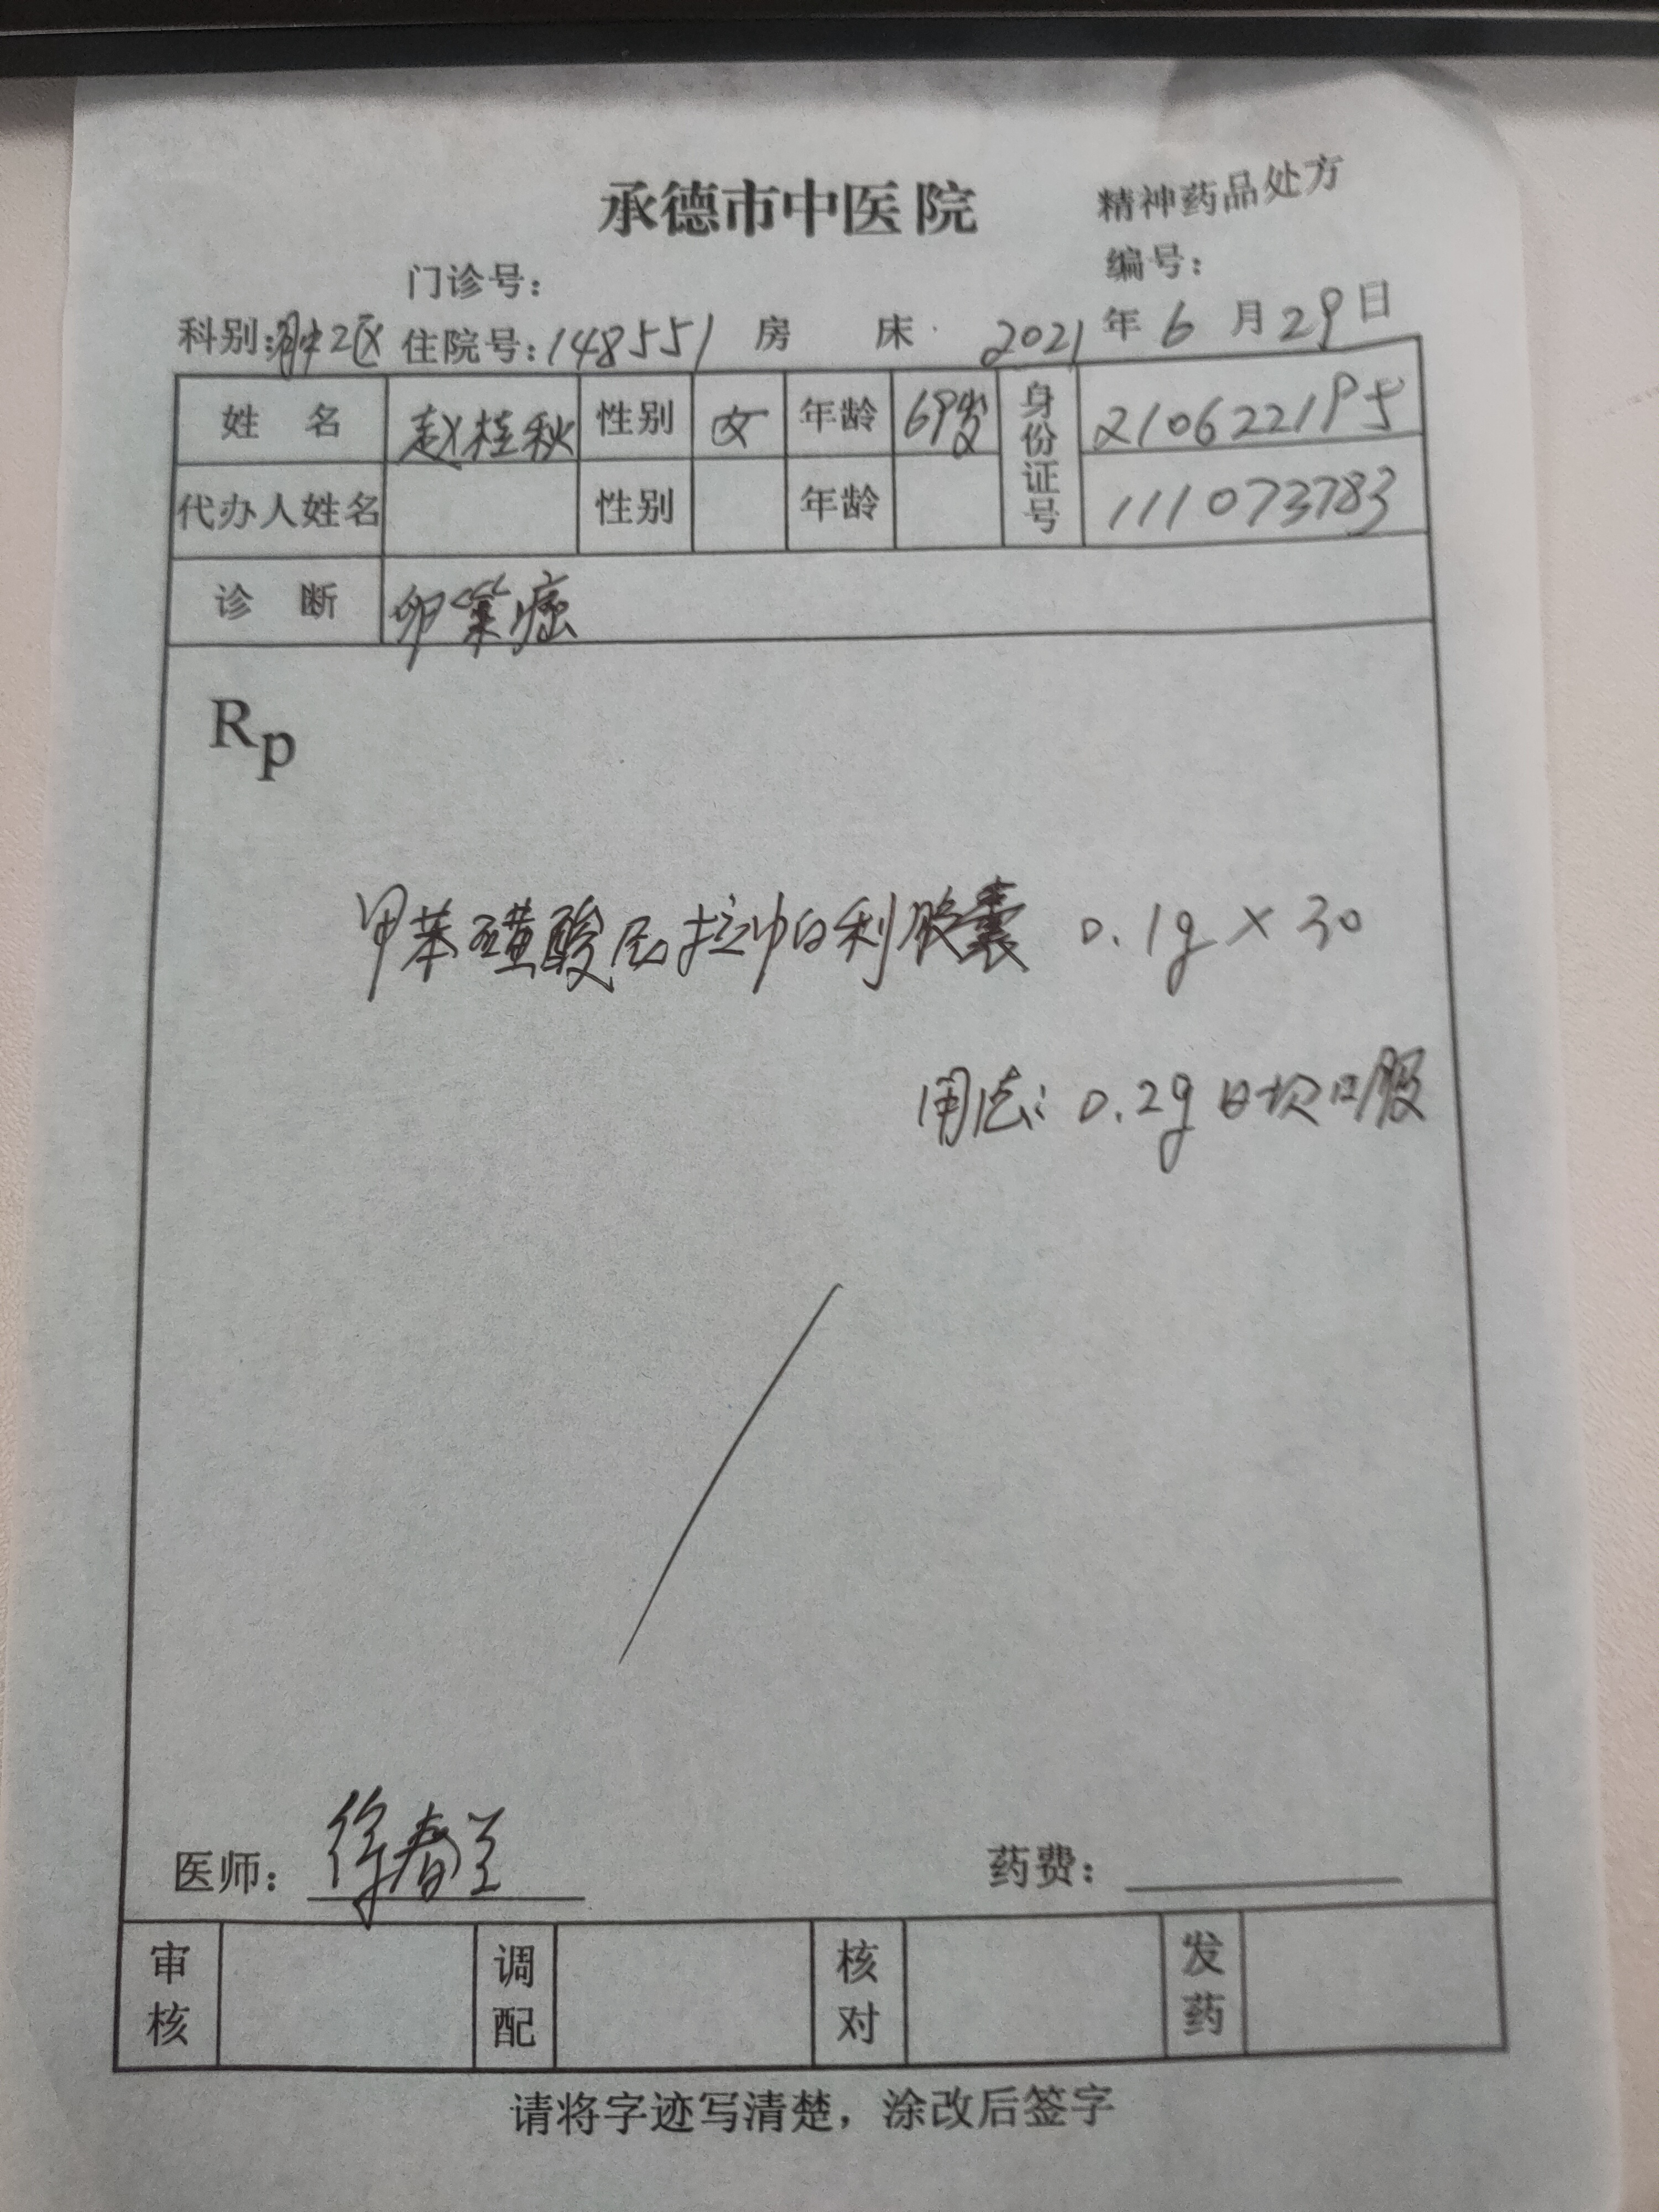 承德市中医院
精神药品处方
门诊号：
编号：
科别：肿2区 住院号：148551 房 床 2021年6月29日
姓名 赵桂秋 性别 女 年龄 69岁 身份证号 210622195
代办人姓名 性别 年龄 111073783
诊断 卵巢癌
Rp
甲苯磺酸尼拉帕利胶囊 0.1g×30
用法：0.2g 日1次 口服
医师：徐春 药费：
审核 调配 核对 发药
请将字迹写清楚，涂改后签字